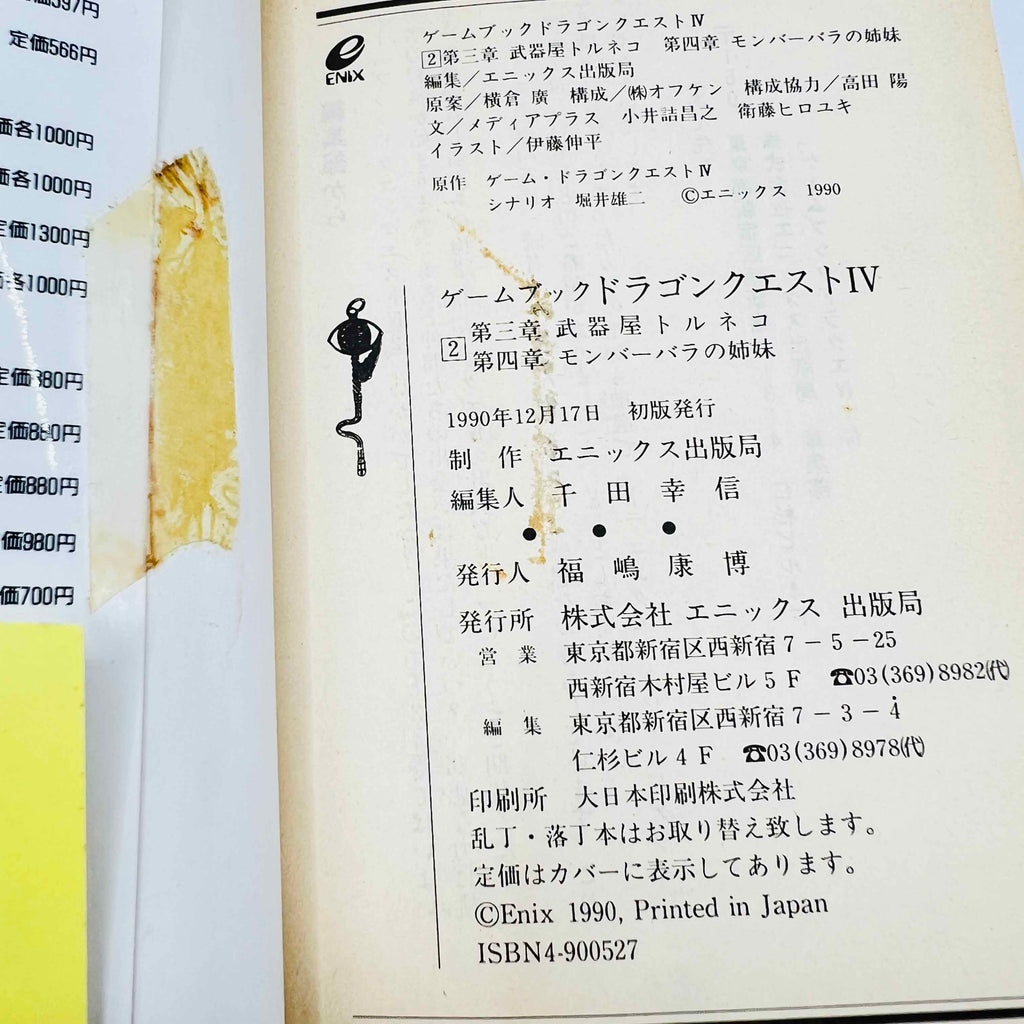 定価566円
価各1000円
価各1000円
定価1300円
価各1000円
定価880円
定価880円
定価880円
価980円
価700円
ENIX
ゲームブックドラゴンクエストⅣ
2 第三章 武器屋トルネコ 第四章 モンバーバラの姉妹
編集/エニックス出版局
原案/横倉 廣 構成/㈱オフケン 構成協力/高田 陽
文/メディアプラス 小井詰昌之 衛藤ヒロユキ
イラスト/伊藤伸平
原作 ゲーム・ドラゴンクエストⅣ
シナリオ 堀井雄二 ©エニックス 1990
ゲームブックドラゴンクエストⅣ
2 第三章 武器屋トルネコ
第四章 モンバーバラの姉妹
1990年12月17日 初版発行
制 作 エニックス出版局
編集人 千田幸信
● ● ●
発行人 福嶋康博
発行所 株式会社 エニックス 出版局
営 業 東京都新宿区西新宿7−5−25
西新宿木村屋ビル5F ☎03(369)8982㈹
編 集 東京都新宿区西新宿7−3−4
仁杉ビル4F ☎03(369)8978㈹
印刷所 大日本印刷株式会社
乱丁・落丁本はお取り替え致します。
定価はカバーに表示してあります。
©Enix 1990, Printed in Japan
ISBN4-900527